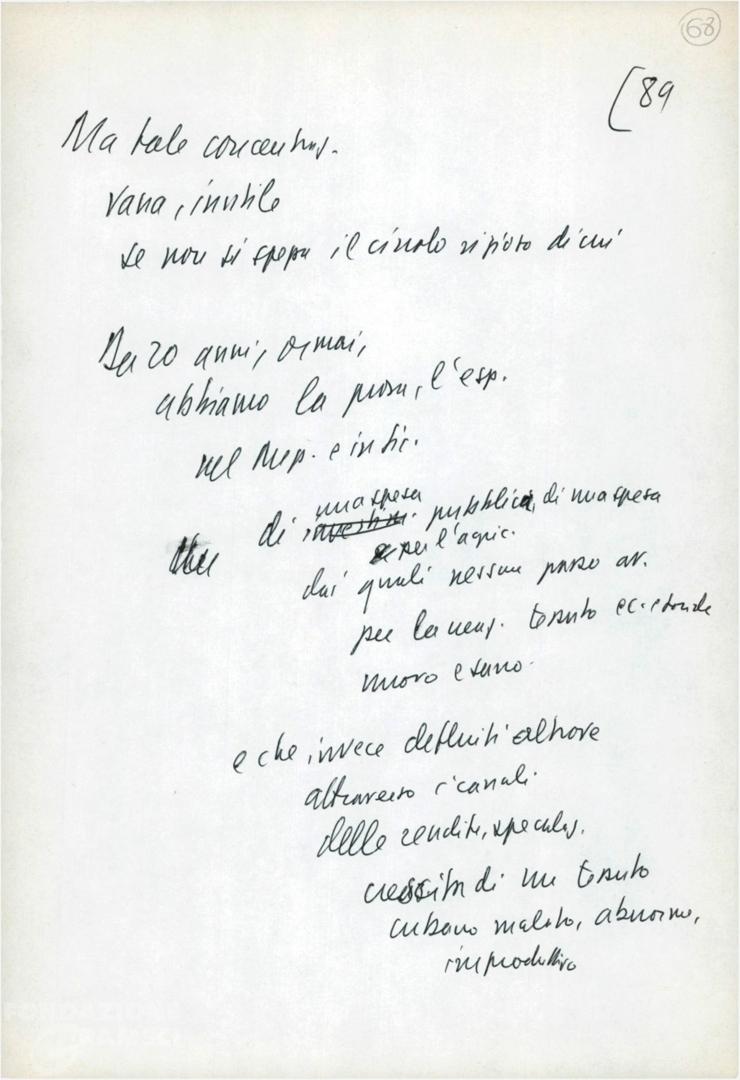 68
[89
Ma tale concentraz.
vana, inutile
se non si spezza il circolo vizioso di cui
Da 20 anni, ormai,
abbiamo la prova, l'esp.
nel Mezz. e in Sic.
di una spesa pubblica, di una spesa
per l'agric.
dai quali nessun passo av.
per la nasc. tessuto ec. e sociale
nuovo e sano.
e che invece defluiti altrove
attraverso i canali
delle rendite, speculaz.
crescita di un tessuto
urbano malato, abnorme,
improduttivo
FONDAZIONE
GRAMSCI